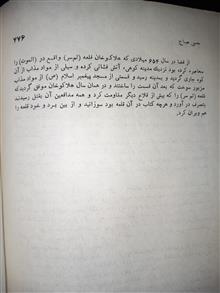 حسن صباح
۲۷۶
از قضا در سال ۶۵۴ میلادی که هلاکوخان قلعه (لم‌سر) واقع در (الموت) را
محاصره کرده بود نزدیک مدینه کوهی، آتش فشانی کرده و سیلی از مواد مذاب از آن
کوه جاری گردید و بمدینه رسید و قسمتی از مسجد پیغمبر اسلام (ص) از مواد مذاب
مزبور سوخت که بعد آن قسمت را ساختند و در همان سال هلاکوخان موفق گردید که
قلعه (لم‌سر) را که بیش از قلاع دیگر مقاومت کرد و همه مدافعین آن بقتل رسیدند
بتصرف در آورد و هرچه کتاب در آن قلعه بود سوزانید و از بین برد و خود قلعه را
هم ویران کرد.